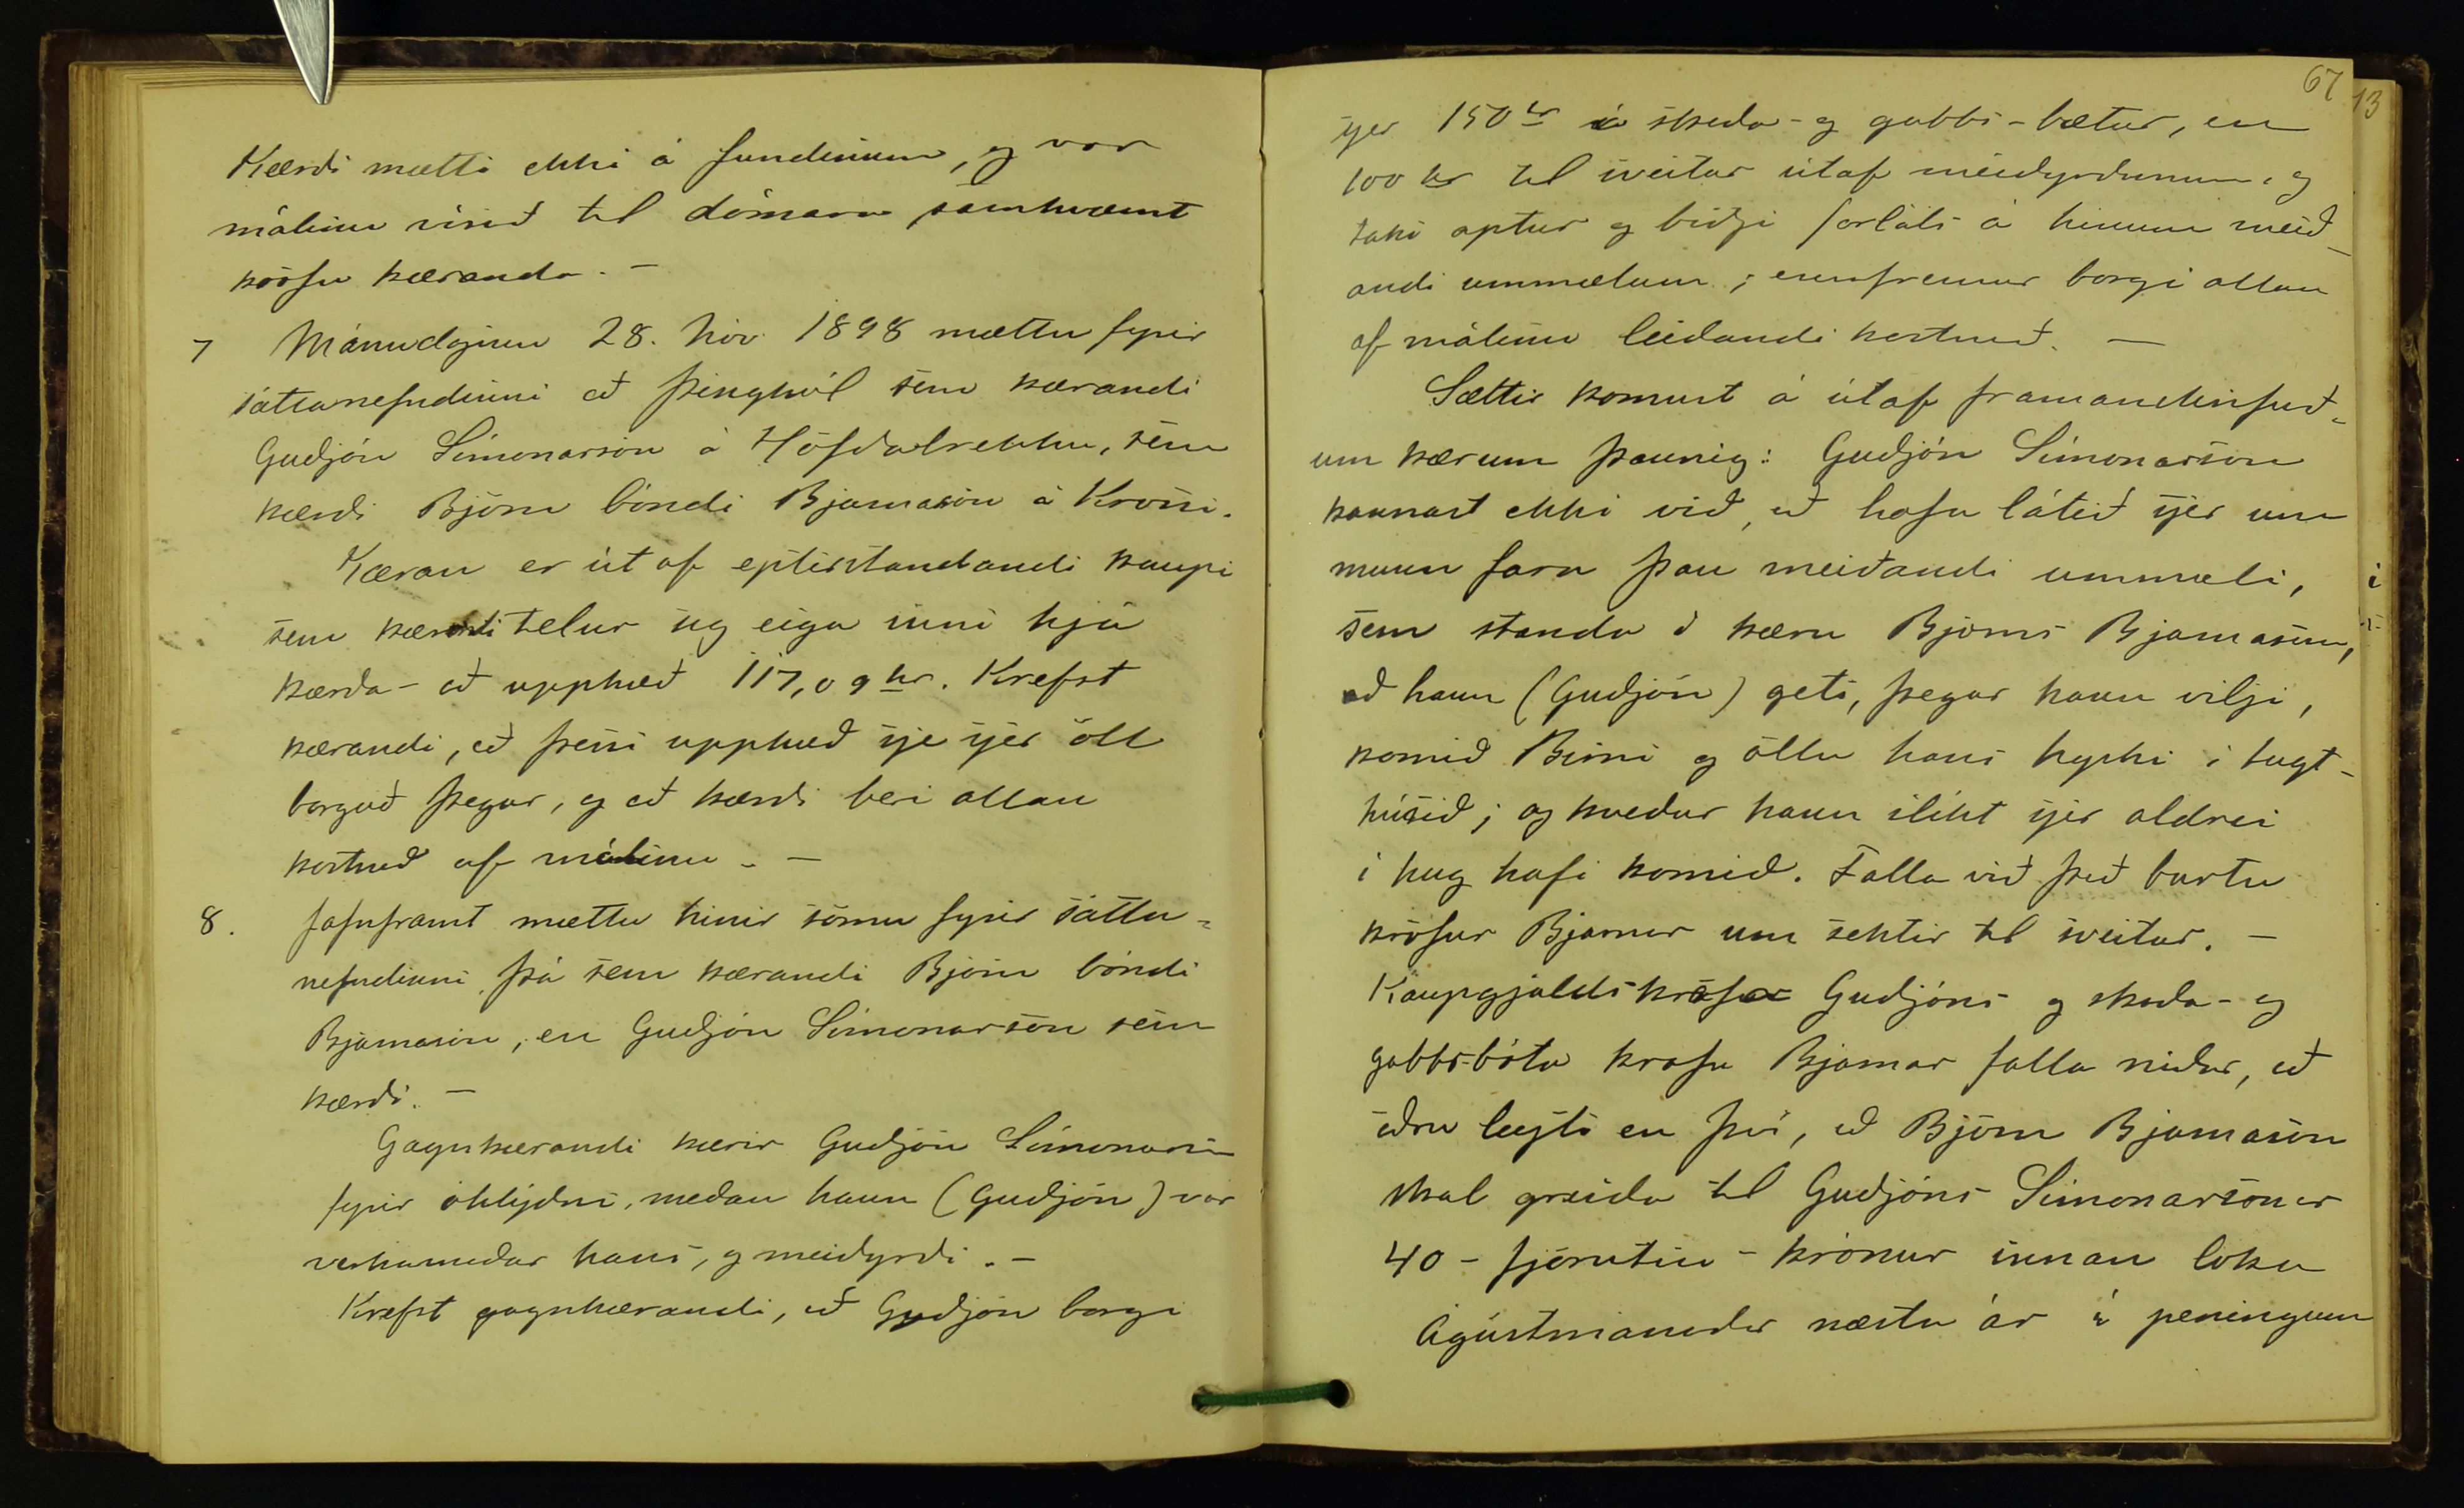 Kærði mætti ekki á fundinum, og var
málinu vísað til dómara samkvæmt
kröfu kæranda. –
7 Mánudaginn 28. Nóv. 1898 mættu fyrir
sáttanefndinni að Þinghól sem kærandi
Guðjón Símonarson á Höfðabrekku, sem
kærði Björn bóndi Bjarnason á Krossi.
Kæran er út af eptirstandandi kaupi
sem kærandi telur sig eiga inni hjá
kærða – að upphæð 117,09 kr. Krefst
kærandi, að þessi upphæð sje sjer öll
borguð þegar, og að kærði beri allan
kostnað af málinu. –
8. Jafnframt mættu hinir sömu fyrir sátta=
nefndinni, þá sem kærandi Björn bóndi
Bjarnason, en Guðjón Símonarson sem
kærði. –
Gagnkærandi kærir Guðjón Símonarson
fyrir óhlýðni, meðan hann (Guðjón) var
verkamaður hans, og meiðyrði. –
Krefst gagnkærandi, að Guðjón borgi
67
13
sjer 150 kr í skaða- og gabbs-bætur, en
100 kr til sveitar útaf meiðyrðunum, og
taki aptur og biðji forláts á hinum meið-
andi ummælum; ennfremur borgi allan
af málinu leiðandi kostnað. –
Sættir komust á útaf framanskrifuð=
um kærum þannig: Guðjón Símonarson
kannast ekki við, að hafa látið sjer um
munn fara þau meiðandi ummæli,
sem standa í kæru Björns Bjarnasonar,
að hann (Guðjón) geti, þegar hann vilji,
komið Birni og öllu hans hyski í tugt-
húsið; og kveður hann slíkt sjer aldrei
í hug hafi komið. Falla við það burtu
kröfur Bjarnar um sektir til sveitar. –
Kaupgjaldskröfur Guðjóns og skaða- og
gabbs-bóta krafa Bjarnar falla niður, að
öðru leyti en því, að Björn Bjarnason
skal greiða til Guðjóns Símonarsonar
40 – fjörutíu – krónur innan loka
Ágústmánaðar næsta ár í peningum